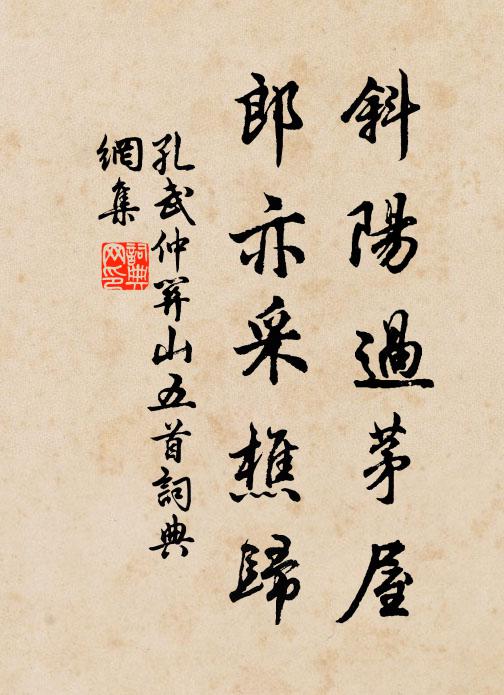 斜陽過茅屋
郎亦采樵歸
孔武仲羿山五首詞典
網集
詞典
网印